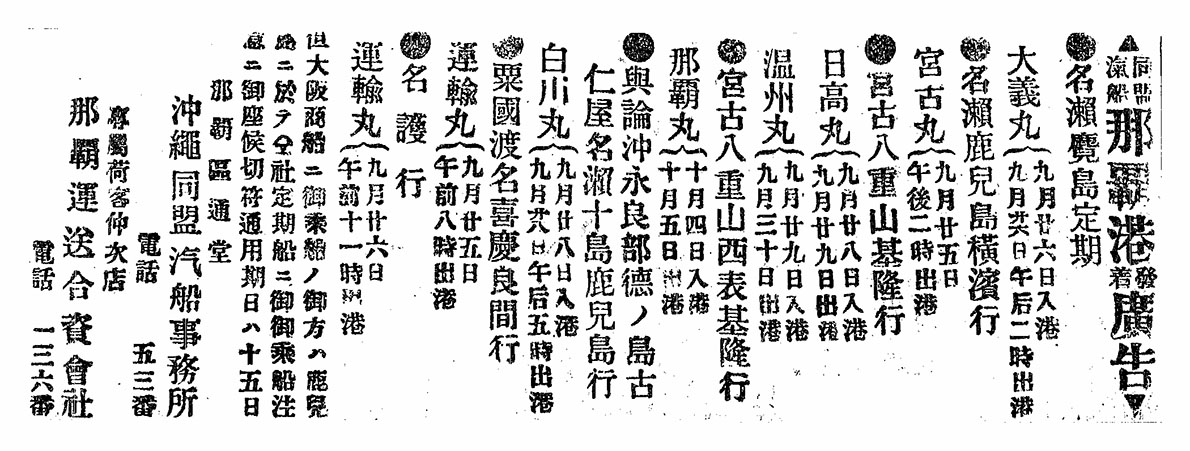 ▲同盟汽船那覇港發着廣告▼
●名瀨鹿島定期
大義丸 九月廿六日入港
九月廿六日午后二時出港
●名瀨鹿兒島橫濱行
宮古丸 九月廿五日
午後二時出港
●宮古八重山基隆行
日高丸 九月廿八日入港
九月廿九日出港
温州丸 九月廿九日入港
九月三十日出港
●宮古八重山西表基隆行
那覇丸 十月四日入港
十月五日出港
●與論沖永良部德ノ島古
仁屋名瀨十島鹿兒島行
白川丸 九月廿八日入港
九月廿八日午后五時出港
●粟國渡名喜慶良間行
運輸丸 九月廿五日
午前八時出港
●名護行
運輸丸 九月廿六日
午前十一時出港
但大阪商船ニ御乘船ノ御方ハ鹿兒
島ニ於テ仝社定期船ニ御御乘船注
意ニ御座候切符通用期日ハ十五日
那覇區通堂
沖繩同盟汽船事務所
電話 五三番
專屬荷客仲次店
那覇運送合資會社
電話 一三六番